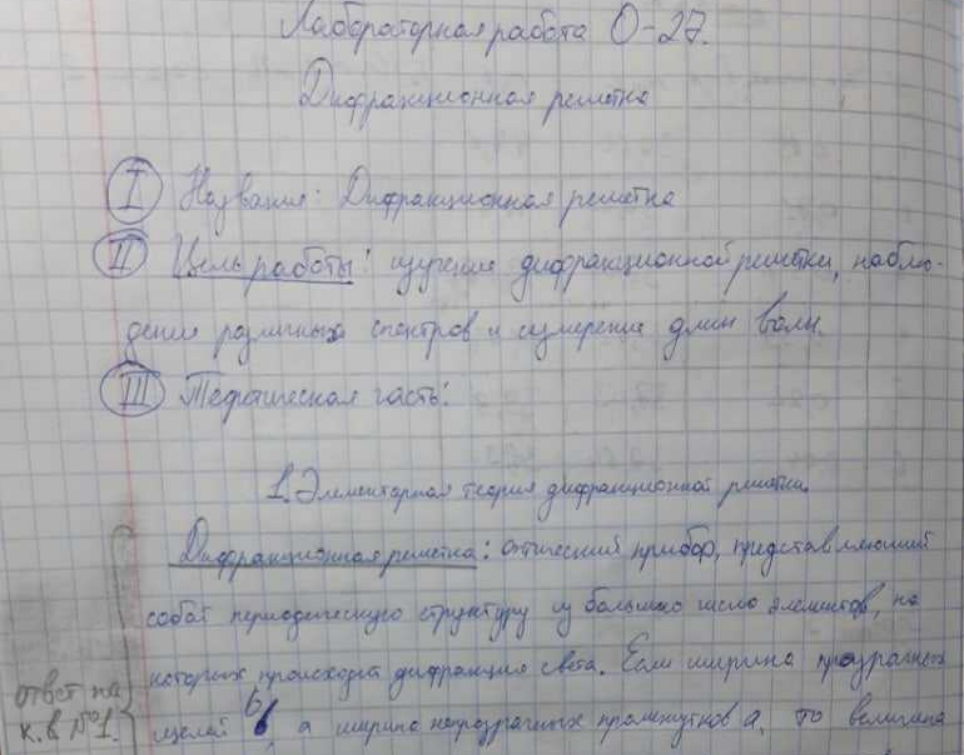 Лабораторная работа О-27.
Дифракционная решетка
I Название: Дифракционная решетка
II Цель работы: изучение дифракционной решетки, наблю-
дение различных спектров и измерение длин волн.
III Теоретическая часть:
1. Элементарная теория дифракционной решетки.
Дифракционная решетка: оптический прибор, представляющий
собой периодическую структуру из большого число элементов, на
которых происходит дифракция света. Если ширина прозрачных
щелей b, а ширина непрозрачных промежутков a, то величина
ответ на
к. в №1.